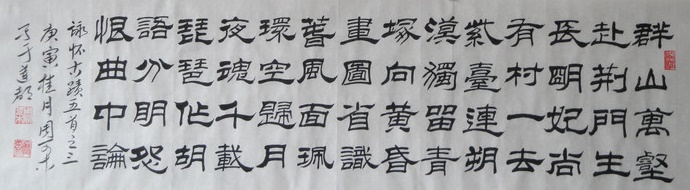 群山萬壑
赴荆門生
長明妃尚
有村一去
紫臺連朔
漠獨留青
塚向黃昏
畫圖省識
春風面珮
環空歸月
夜魂千載
琵琶作胡
語分明怨
恨曲中論
詠懷古蹟五首之三
庚寅桂月周
于